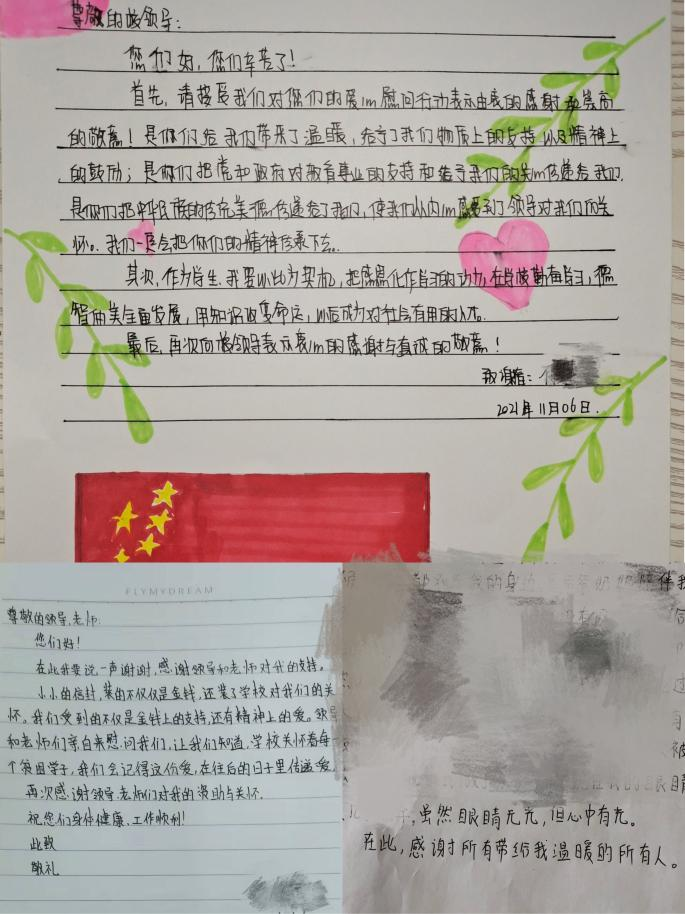 尊敬的校领导：
您们好，您们辛苦了！
首先，请接受我们对您们的爱心慰问行动表示由衷的感谢和崇高
的敬意！是你们给我们带来了温暖，给予了我们物质上的支持以及精神上
的鼓励；是你们把党和政府对教育事业的支持和给予我们的关心传递给我们，
是你们把中华民族的传统美德传递给了我们，使我们从内心感受到了领导对我们的关
怀。我们一定会把你们的精神传承下去。
其次，作为学生，我要以此为契机，把感恩化作学习的动力，在学校勤奋学习，德
智体美全面发展，用知识改变命运，以后成为对社会有用的人才。
最后，再次向校领导表示衷心的感谢与真诚的敬意！
致谢者：
2021年11月06日.
FLYMYDREAM
尊敬的领导、老师：
您们好！
在此我要说一声谢谢，感谢领导和老师对我的支持。
小小的信封，装的不仅仅是金钱，还装了学校对我们的关
怀。我们受到的不仅是金钱上的支持，还有精神上的爱。领导
和老师们亲自来慰问我们，让我们知道，学校关怀着每
个贫困学子，我们会记得这份爱，在往后的日子里传递爱
再次感谢领导、老师们对我的资助与关怀.
祝您们身体健康、工作顺利！
此致
敬礼
我的身边 奶奶陪伴我
被
的眼睛
，虽然眼睛无光，但心中有光。
在此，感谢所有带给我温暖的所有人。